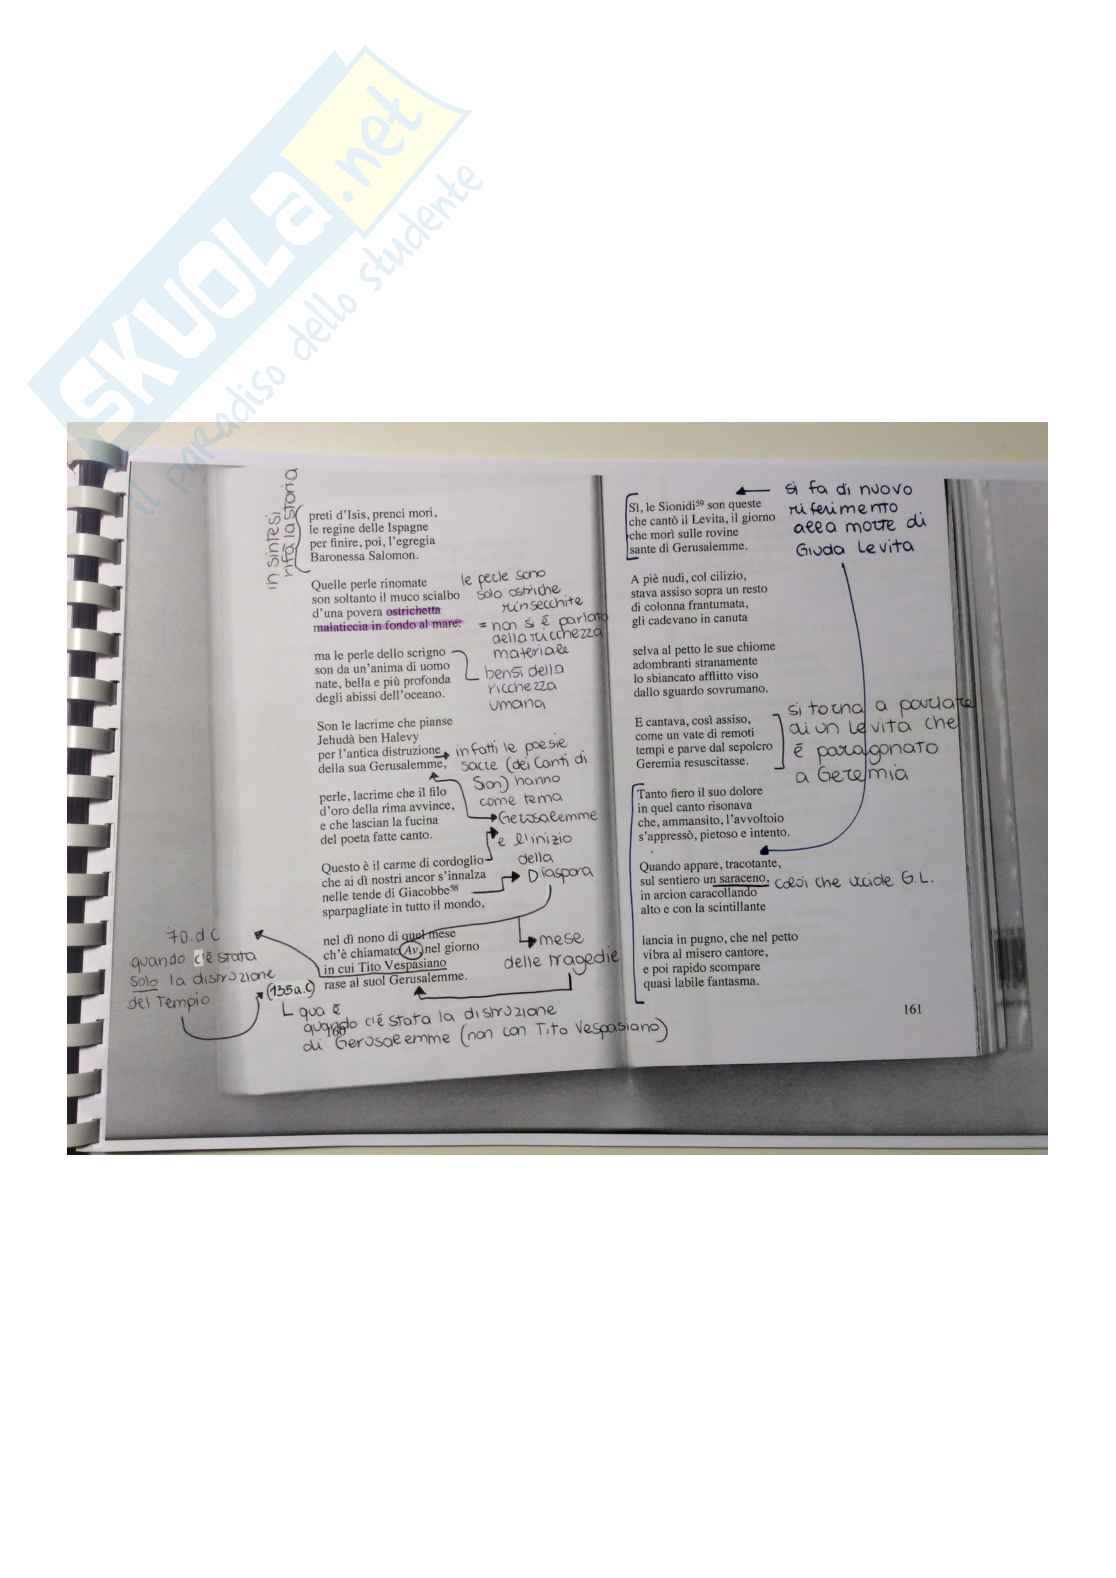 SKUOLA.net
il paradiso dello studente
in sintesi
rifà la storia
preti d'Isis, prenci mori,
le regine delle Ispagne
per finire, poi, l'egregia
Baronessa Salomon.
Quelle perle rinomate
son soltanto il muco scialbo
d'una povera ostrichetta
malaticcia in fondo al mare:
le perle sono
solo ostriche
rinsecchite
= non si è parlato
della ricchezza
materiale
bensì della
ricchezza
umana
ma le perle dello scrigno
son da un'anima di uomo
nate, bella e più profonda
degli abissi dell'oceano.
Son le lacrime che pianse
Jehudà ben Halevy
per l'antica distruzione
della sua Gerusalemme,
infatti le poesie
sacre (dei Canti di
Sion) hanno
come tema
Gerusalemme
perle, lacrime che il filo
d'oro della rima avvince,
e che lascian la fucina
del poeta fatte canto.
è l'inizio
della
Diaspora
Questo è il carme di cordoglio
che ai dì nostri ancor s'innalza
nelle tende di Giacobbe⁵⁸
sparpagliate in tutto il mondo,
nel dì nono di quel mese
ch'è chiamato Av, nel giorno
in cui Tito Vespasiano
rase al suol Gerusalemme.
mese
delle tragedie
70. d C
quando c'è stata
solo la distruzione
del Tempio
(135 a.C)
qua è
quando c'è stata la distruzione
di Gerusalemme (non con Tito Vespasiano)
160
Sì, le Sionidi⁵⁹ son queste
che cantò il Levita, il giorno
che morì sulle rovine
sante di Gerusalemme.
si fa di nuovo
riferimento
alla morte di
Giuda Levita
A piè nudi, col cilizio,
stava assiso sopra un resto
di colonna frantumata,
gli cadevano in canuta
selva al petto le sue chiome
adombranti stranamente
lo sbiancato afflitto viso
dallo sguardo sovrumano.
E cantava, così assiso,
come un vate di remoti
tempi e parve dal sepolcro
Geremia resuscitasse.
si torna a parlare
di un Levita che
è paragonato
a Geremia
Tanto fiero il suo dolore
in quel canto risonava
che, ammansito, l'avvoltoio
s'appressò, pietoso e intento.
Quando appare, tracotante,
sul sentiero un saraceno,
in arcion caracollando
alto e con la scintillante
colui che uccide G.L.
lancia in pugno, che nel petto
vibra al misero cantore,
e poi rapido scompare
quasi labile fantasma.
161